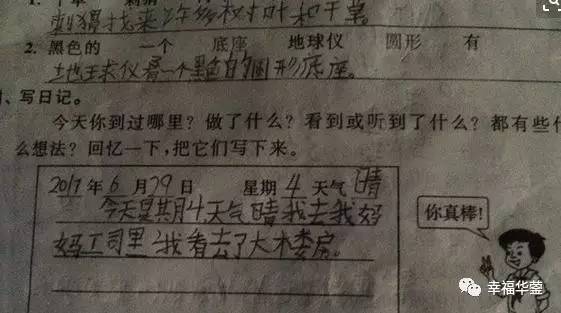 刺猬找来许多树叶和干草。
2. 黑色的 一个 底座 地球仪 圆形 有
地球仪有一个黑色的圆形底座。
、写日记。
今天你到过哪里?做了什么?看到或听到了什么?都有些什
么想法?回忆一下,把它们写下来。
2017年6月29日 星期4 天气晴
今天是其月4天气晴我去我妈
妈工司里 我看去了大木娄房。
你真棒!
幸福华蓥